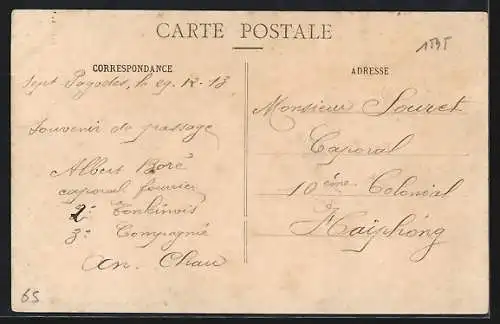 CARTE POSTALE
CORRESPONDANCE
ADRESSE
Sept Pagodes, le 29-12-13
Souvenir de passage
Albert Boré
caporal fourrier
2e Tonkinois
3e Compagnie
An. Chau
Monsieur Souret
Caporal
10ème Colonial
Haïphong
65